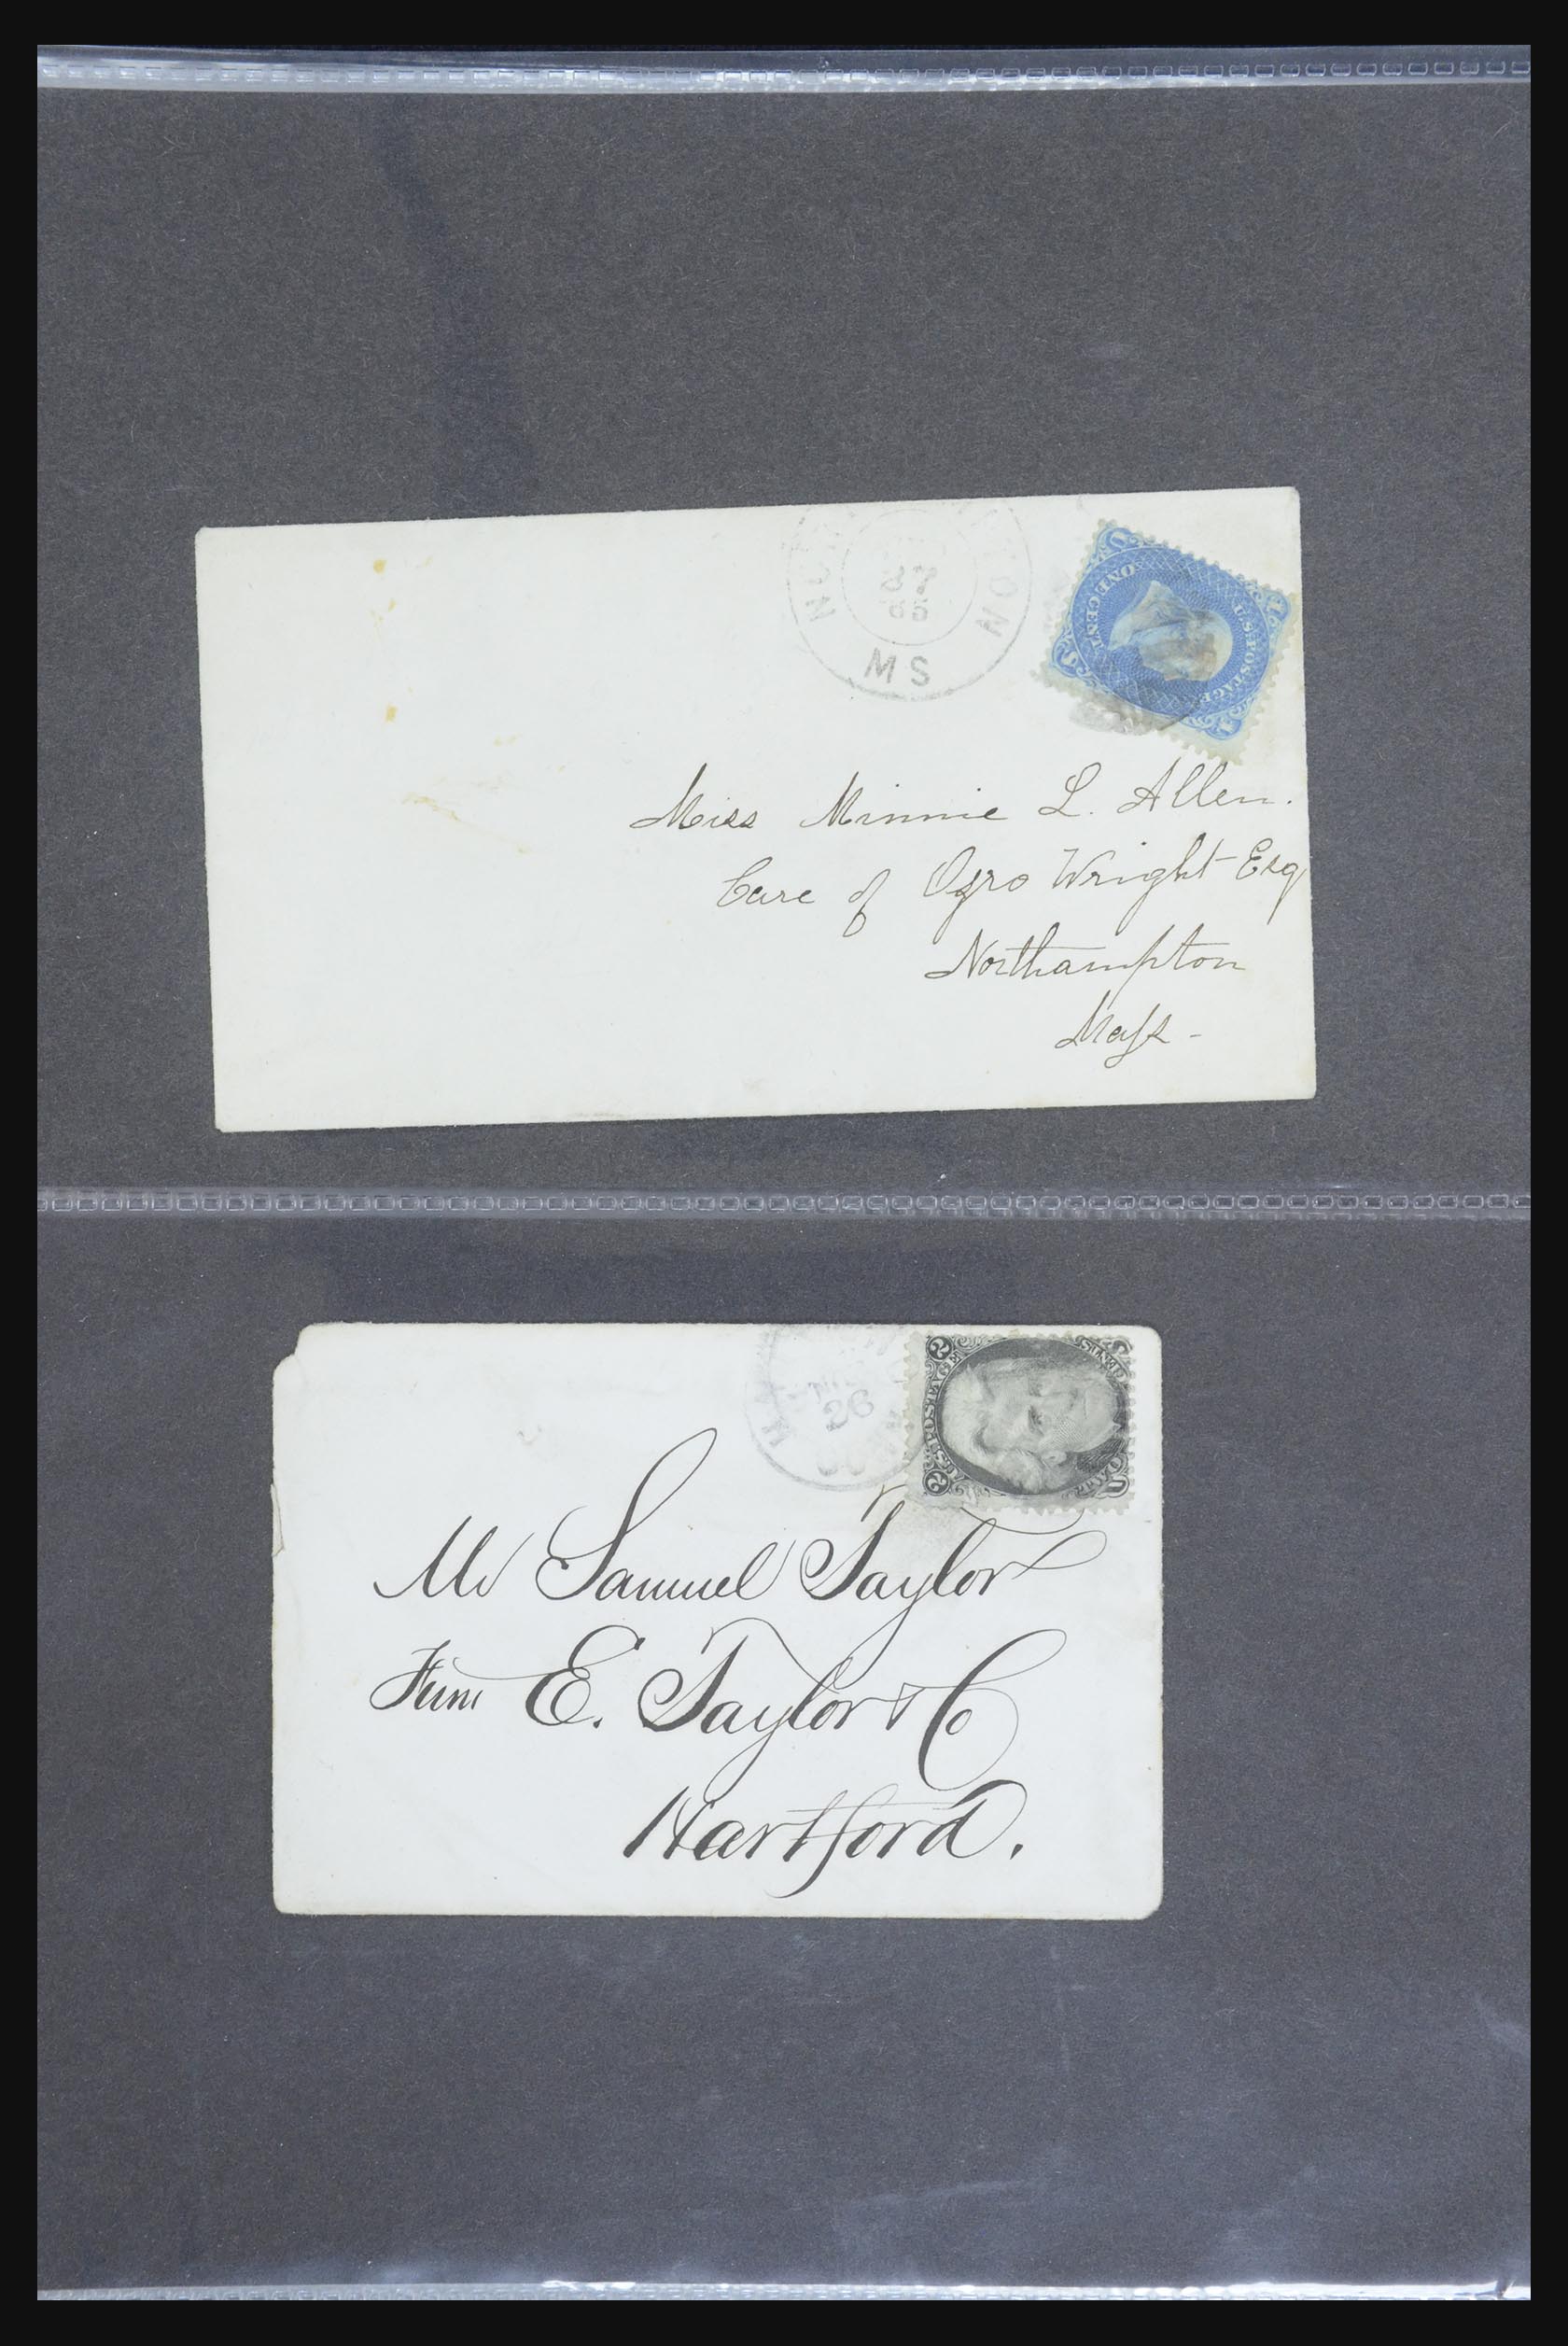 27
65
MS
ONE CENT
U.S. POSTAGE
Miss Minnie L. Allen.
Care of Wright Esq
Northampton
Mass -
26
2 U.S. POSTAGE 2
Mr Samuel Taylor
Firm E. Taylor & Co
Hartford.